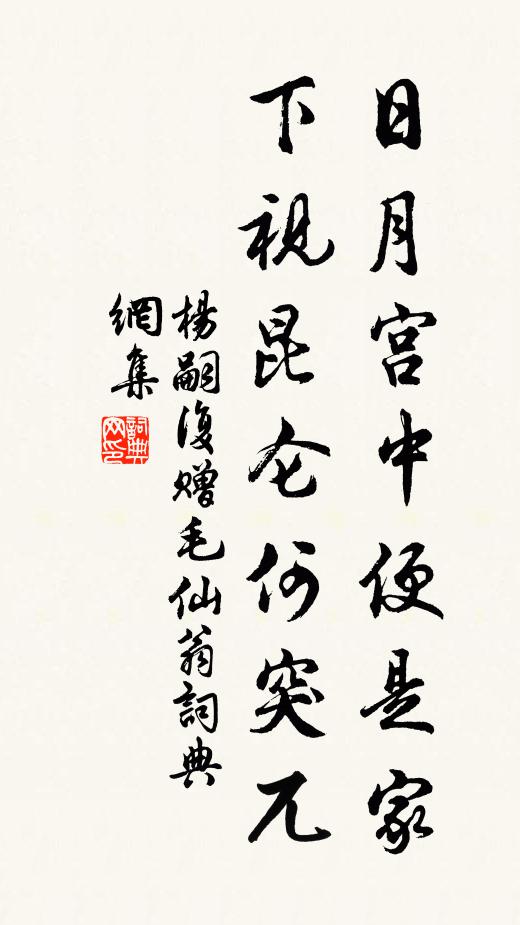 日月宫中便是家
下視昆仑何突兀
楊嗣復赠毛仙翁詞典
網集
詞典网印